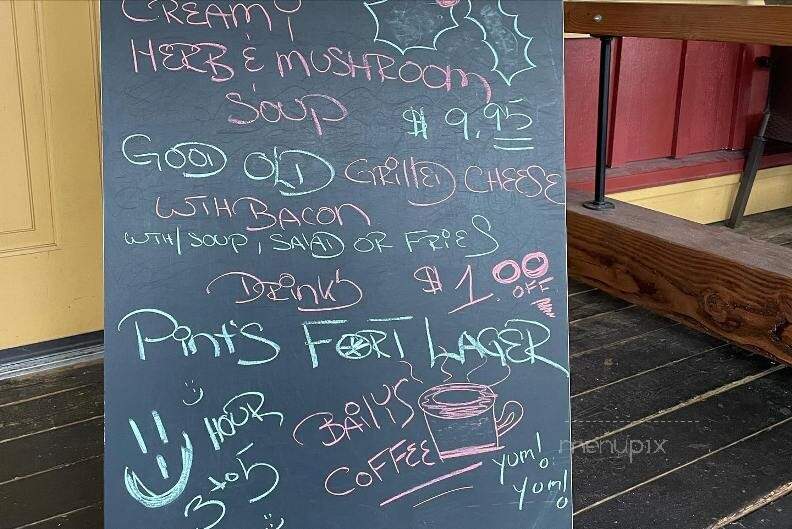 CREAMY
HERB & MUSHROOM
SOUP $9.95
GOOD OLD GRILLED CHEESE
WITH BACON
WITH/SOUP, SALAD OR FRIES
DRINKS $1.00
OFF
PINT'S FORT LAGER
HOUR
3 to 5
BAILYS
COFFEE
YUM!
YUM!
menupix